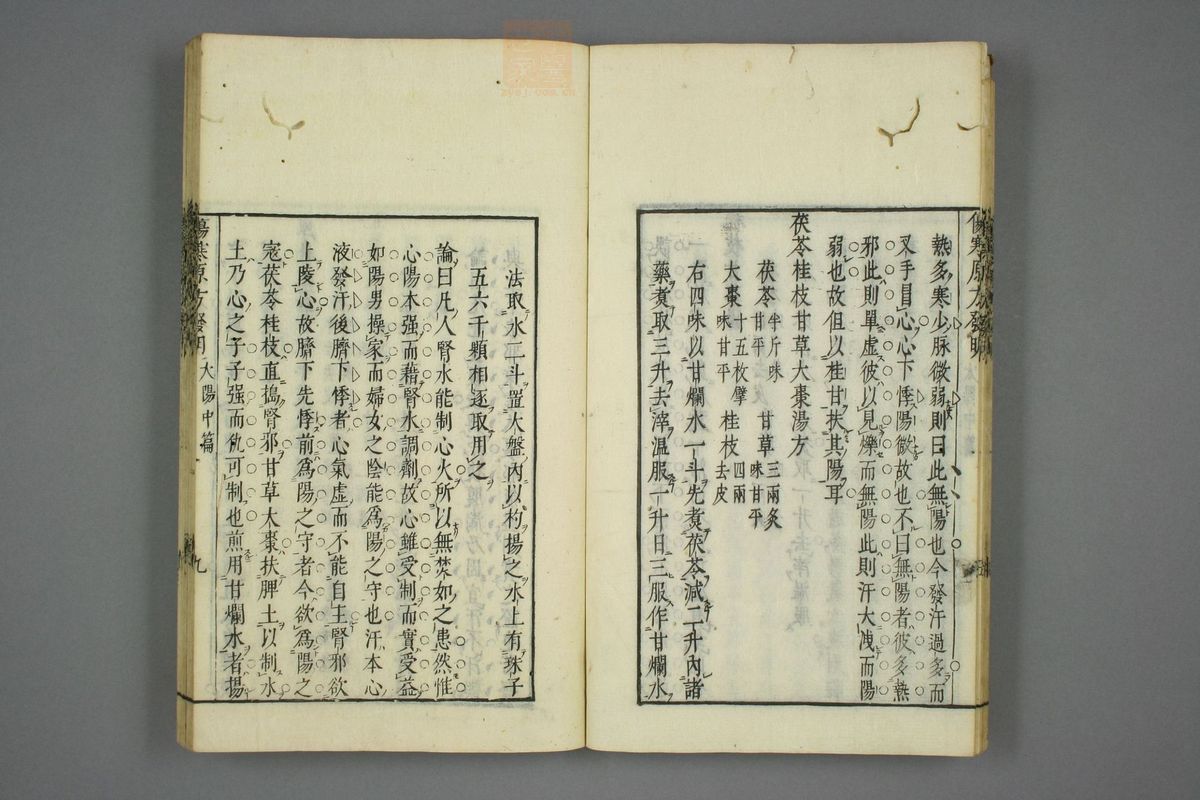 熱多寒少脉微弱則曰此無陽也今發汗過多而
叉手冒心心下悸陽微故也不曰無陽者彼多熱
邪此則單虛彼以見爍而無陽此則汗大洩而陽
弱也故但以桂甘扶其陽耳
茯苓桂枝甘草大棗湯方
茯苓半斤味甘平 甘草三兩炙味甘平
大棗十五枚擘味甘平 桂枝四兩去皮
右四味以甘爛水一斗先煑茯苓減二升內諸
藥煑取三升去滓温服一升日三服作甘爛水
法取水二斗置大盤內以杓揚之水上有珠子
五六千顆相逐取用之
論曰凡人腎水能制心火所以無焚如之患然惟
心陽本强而藉腎水調劑故心雖受制而實受益
如陽男操家而婦女之陰能爲陽之守也汗本心
液發汗後臍下悸者心氣虛而不能自王腎邪欲
上陵心故臍下先悸前爲陽之守者今欲爲陽之
宼茯苓桂枝直搗腎邪甘草大棗扶脾土以制水
土乃心之子子强而仇可制也煎用甘爛水者揚
傷寒原方發明 太陽中篇 九